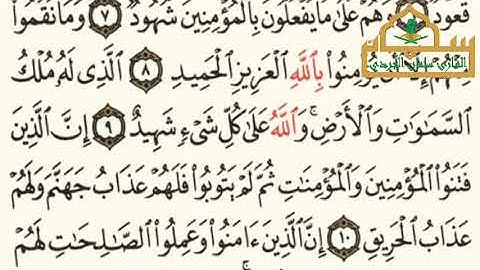 قُعُودٌ ٦ وَهُمْ عَلَىٰ مَا يَفْعَلُونَ بِالْمُؤْمِنِينَ شُهُودٌ ٧ وَمَا نَقَمُوا
مِنْهُمْ إِلَّا أَن يُؤْمِنُوا بِاللَّهِ الْعَزِيزِ الْحَمِيدِ ٨ الَّذِي لَهُ مُلْكُ
السَّمَاوَاتِ وَالْأَرْضِ ۚ وَاللَّهُ عَلَىٰ كُلِّ شَيْءٍ شَهِيدٌ ٩ إِنَّ الَّذِينَ
فَتَنُوا الْمُؤْمِنِينَ وَالْمُؤْمِنَاتِ ثُمَّ لَمْ يَتُوبُوا فَلَهُمْ عَذَابُ جَهَنَّمَ وَلَهُمْ
عَذَابُ الْحَرِيقِ ١٠ إِنَّ الَّذِينَ ءَامَنُوا وَعَمِلُوا الصَّالِحَاتِ لَهُمْ